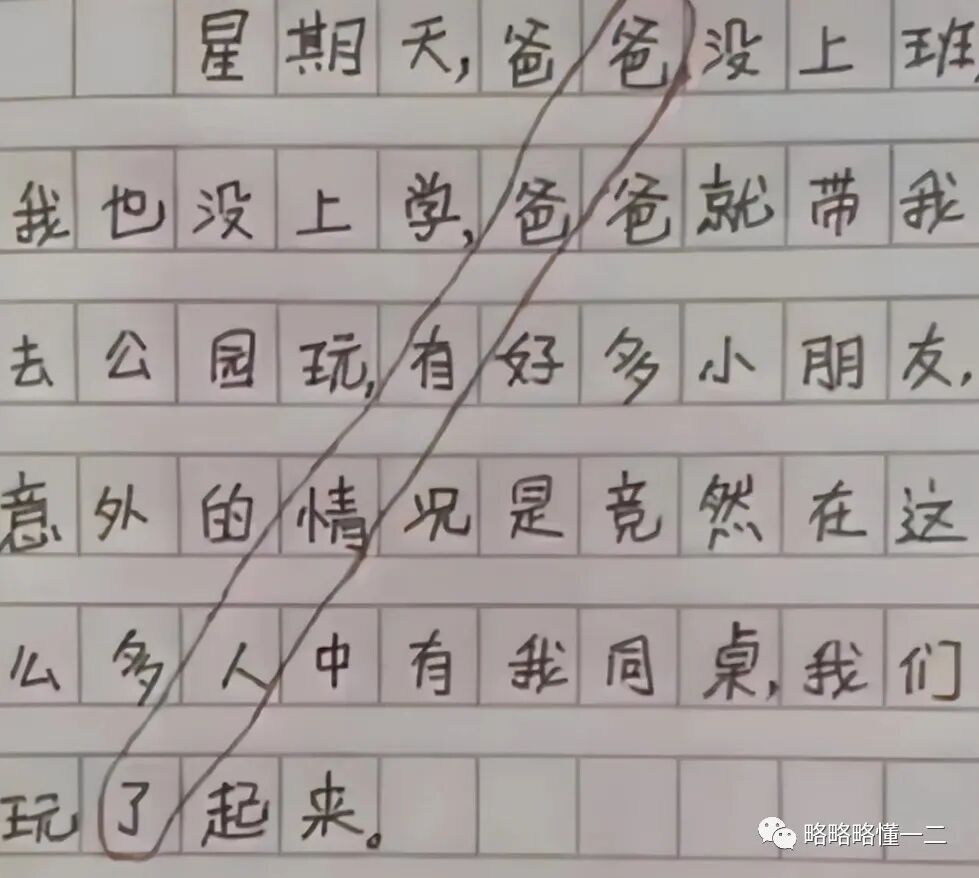 星期天,爸爸没上班
我也没上学,爸爸就带我
去公园玩,有好多小朋友,
意外的情况是竟然在这
么多人中有我同桌,我们
玩了起来。
略略略懂一二